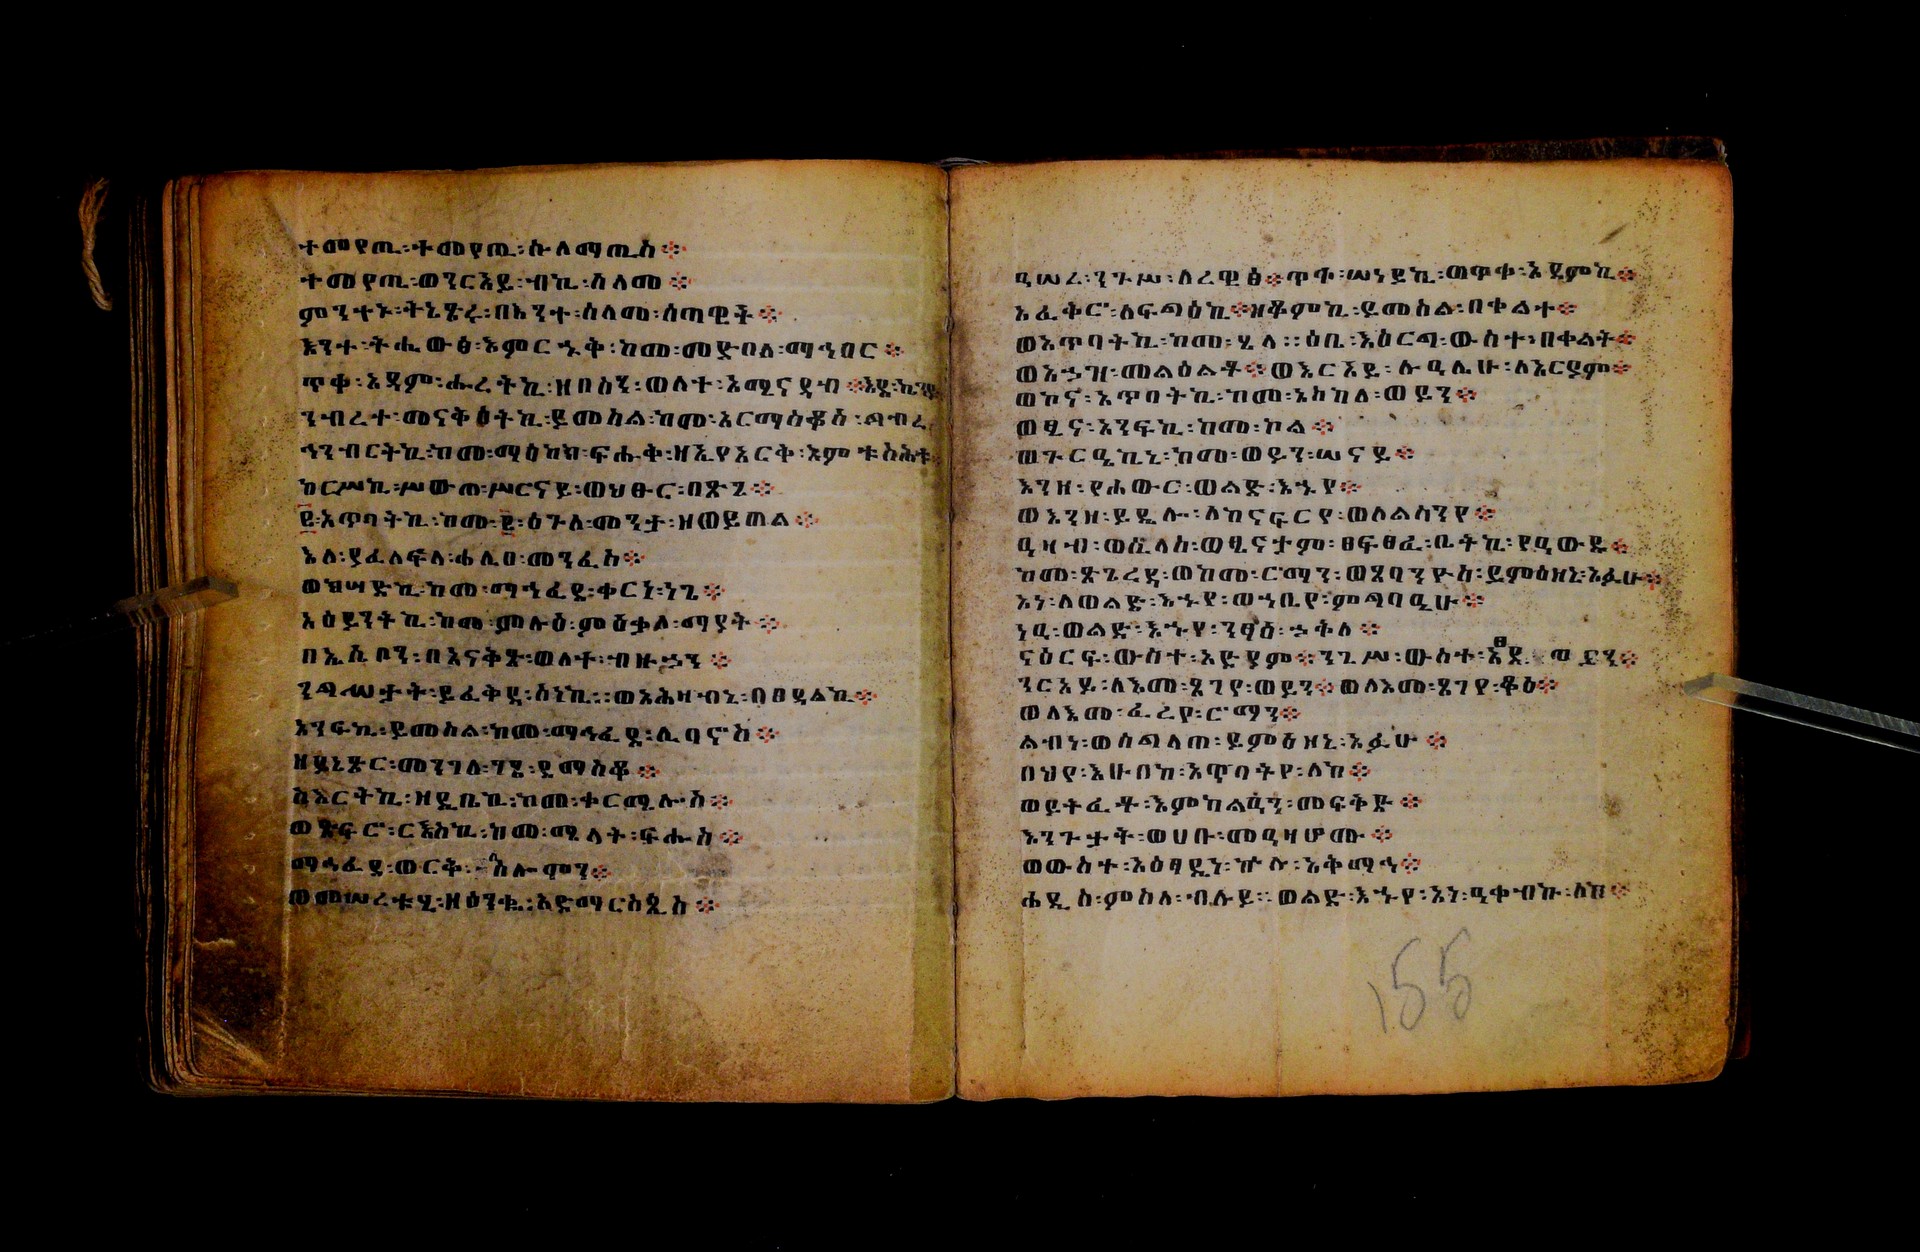 ተመየጢ፡ተመየጢ፡ሱላማጢስ፨
ተመየጢ፡ወንርአይ፡ብኪ፡ሰላመ፨
ምንተኑ፡ትኔጽሩ፡በእንተ፡ሰላመ፡ሰጣዊት፨
እንተ፡ትሒውፅ፡እምርኁቅ፡ከመ፡መድበለ፡ማኅበር፨
ጥቀ፡አዳም፡ሑረትኪ፡ዘበስኂ፡ወለተ፡አሚናዳብ፨
ንብረተ፡መናቅዕትኪ፡ይመስል፡ከመ፡አርማስቆስ፡
ኅንብርትኪ፡ከመ፡ማዕከክ፡ፍሑቅ፡ዘኢየአርቅ፡እምቱስሕት
ከርሥኪ፡ሥውጠ፡ሥርናይ፡ወህፁር፡በጽጌ፨
፪፡አጥባትኪ፡ከመ፡፪፡ዕጉለ፡መንታ፡ዘወይጠል፨
እለ፡ያፈለፍላ፡ሐሊበ፡መንፈስ፨
ወክሣድኪ፡ከመ፡ማኅፈደ፡ቀርነ፡ነጌ፨
አዕይንትኪ፡ከመ፡ምሉዕ፡ምዕቃለ፡ማያት፨
በኢሴቦን፡በአናቅጸ፡ወለተ፡ብዙኃን፨
ንጻሬታት፡ይፈቅዳ፡ስነኪ፡፡ወአሕዛብኒ፡በፀዳልኪ፨
አንፍኪ፡ይመስል፡ከመ፡ማኅፈደ፡ሊባኖስ፨
ዘይኔጽር፡መንገለ፡ገጸ፡ደማስቆ፨
ስእርትኪ፡ዘዲቤኪ፡ከመ፡ቀርሜሎስ፨
ወጽፍሮ፡ርእስኪ፡ከመ፡ሜላት፡ፍሑስ፨
ማኅፈደ፡ወርቅ፡ሰሎሞን፨
ወመሠረቱሂ፡ዘዕንቈ፡አድማርስጲስ፨
ዚሠረ፡ንጉሥ፡ለረዊፅ፨ጥቀ፡ሠነይኪ፡ወጥቀ፡አደምኪ፨
አፈቅሮ፡ለፍጻዕኪ፨ዘቆምኪ፡ይመስል፡በቀልተ፨
ወአጥባትኪ፡ከመ፡ሂላ፡፡ዕቤ፡እዕርግ፡ውስተ፡በቀልት፨
ወእኅዝ፡መልዕልቶ፨ወእርአይ፡ሉዚሊሁ፡ለአርያም፨
ወኮና፡አጥባትኪ፡ከመ፡አስከለ፡ወይን፨
ወፄና፡አንፍኪ፡ከመ፡ኮል፨
ወጉርዔኪኒ፡ከመ፡ወይን፡ሠናይ፨
እንዘ፡የሐውር፡ወልድ፡እኁየ፨
ወእንዘ፡ይዴሉ፡ለከናፍርየ፡ወለልስንየ፨
ከመ፡ጽጌረዳ፡ወከመ፡ሮማን፡
አነ፡ለወልድ፡እኁየ፡ወኀቤየ፡ምጻባዒሁ፨
ነዒ፡ወልድ፡እኁየ፡ንፃዕ፡ኃቅለ፨
ናዕርፍ፡ውስተ፡አድያም፨ንጊሥ፡ውስተ፡
ንርአይ፡ለእመ፡ጸገየ፡ወይን፨ወለእመ፡ጸገየ፡ቆዕ፨
ወለእመ፡ፈረየ፡ሮማን፨
ልብነ፡ወሰጻላጠ፡ይምዕዘኒ፡አፉሁ፨
በህየ፡እሁበከ፡አጥባትየ፡ለከ፨
ወይትፈቶ፡እምከልዒን፡መፍቅድ፨
እንጉታት፡ወሀቡ፡መዒዛሆሙ፨
ወውስተ፡አዕፃዲነ፡ኵሉ፡አቅማኅ፨
ሐዲስ፡ምስለ፡ብሉይ፡፡ወልድ፡እኁየ፡አነ፡ዓቀብኩ፡ለከ፨
155